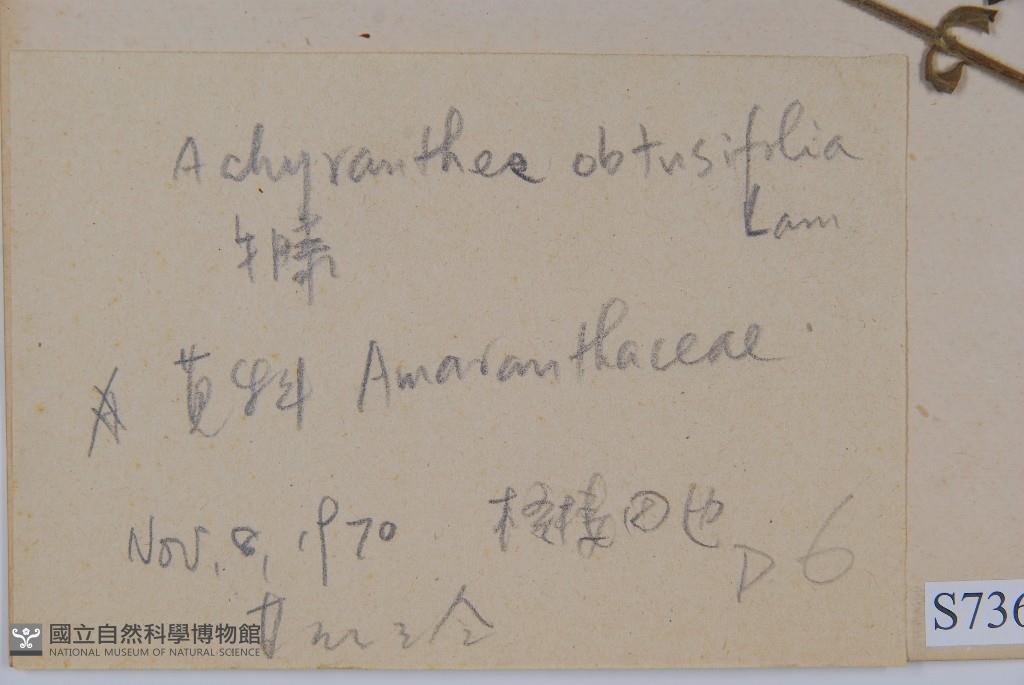 Achyranthes obtusifolia
Lam
牛膝
莧科 Amaranthaceae.
Nov. 8, 1970
D6
S736
國立自然科學博物館
NATIONAL MUSEUM OF NATURAL SCIENCE